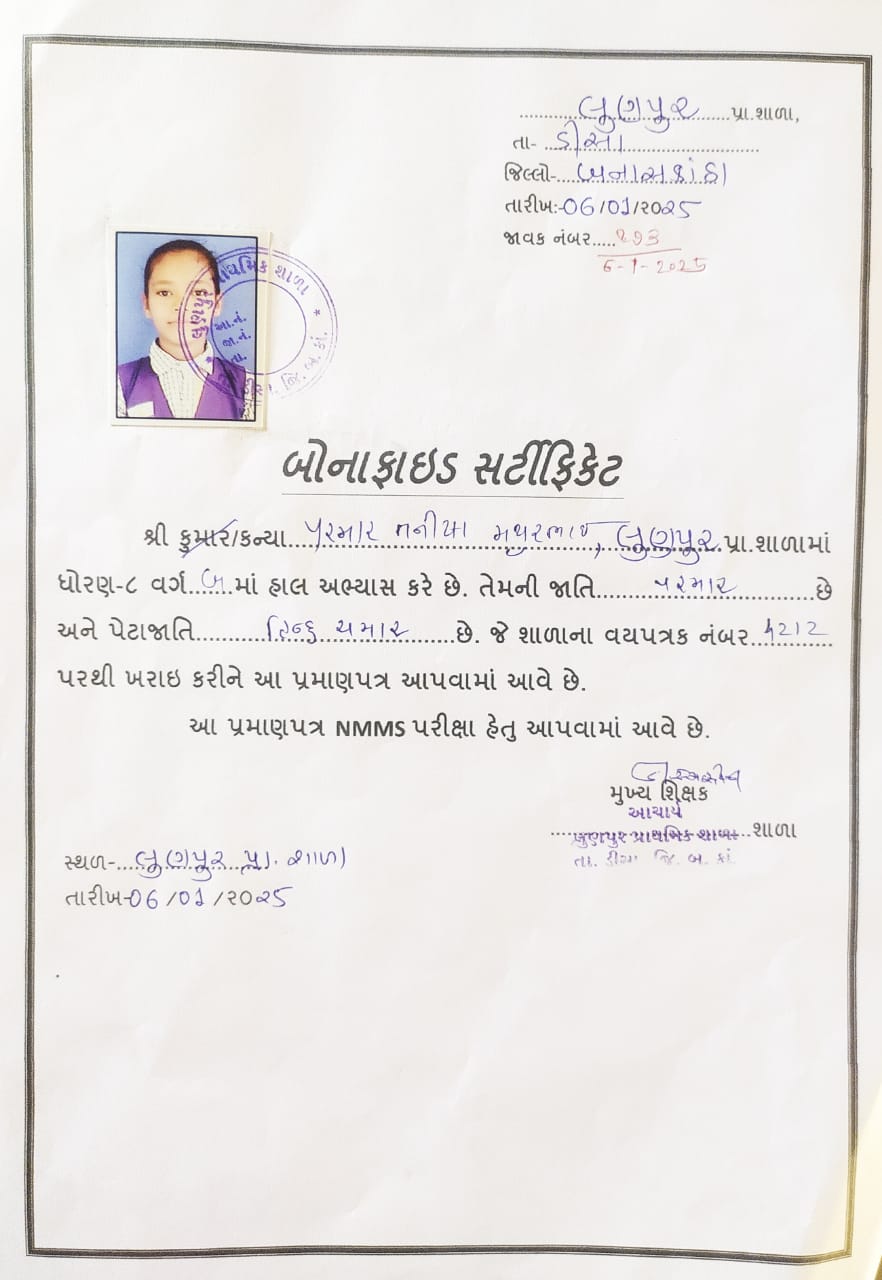 લુણપુર પ્રા.શાળા,
તા- ડીસા
જિલ્લો- બનાસકાંઠા
તારીખ:-06/01/૨૦25
જાવક નંબર.....293
6-1-2025
પ્રાથમિક શાળા
લુણપુર
આ.નં.
જા.નં.
તા.
જિ. બ. કાં.
બોનાફાઇડ સર્ટીફિકેટ
શ્રી કુમાર/કન્યા પરમાર તનીષા મથુરભાઈ, લુણપુર પ્રા.શાળામાં
ધોરણ-૮ વર્ગ બ માં હાલ અભ્યાસ કરે છે. તેમની જાતિ પરમાર છે
અને પેટાજાતિ હિન્દુ ચમાર છે. જે શાળાના વયપત્રક નંબર 4212
પરથી ખરાઇ કરીને આ પ્રમાણપત્ર આપવામાં આવે છે.
આ પ્રમાણપત્ર NMMS પરીક્ષા હેતુ આપવામાં આવે છે.
મુખ્ય શિક્ષક
આચાર્ય
લુણપુર પ્રાથમિક શાળા શાળા
તા. ડીસા જિ. બ. કાં
સ્થળ- લુણપુર પ્રા. શાળા
તારીખ-06/01/૨૦25